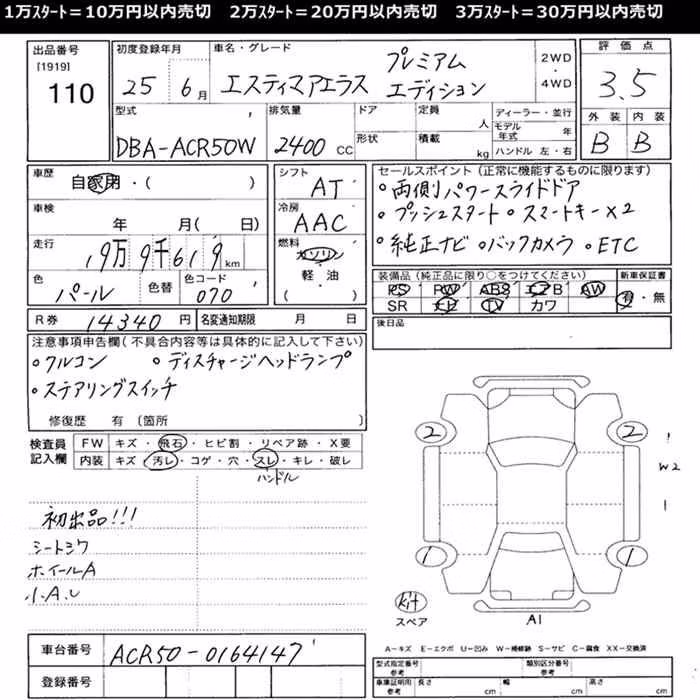 1万ｽﾀｰﾄ＝10万円以内売切　2万ｽﾀｰﾄ＝20万円以内売切　3万ｽﾀｰﾄ＝30万円以内売切
出品番号
[1919]
110
初度登録年月
25 6月
車名・グレード
エスティマアエラス プレミアム エディション
2WD
・
4WD
評価点
3.5
外装 内装
B B
型式
DBA-ACR50W
排気量
2400 CC
ドア
形状
定員 人
積載 kg
ディーラー・並行
モデル年式 年
ハンドル 左・右
車歴
自家用・( )
車検
年 月( 日)
走行
19万9千619km
色
パール
色替
色コード
070
シフト
AT
冷房
AAC
燃料
ガソリン
軽・油
( )
R券 14340円
名変通知期限 月 日
セールスポイント（正常に機能するものに限ります）
・両側パワースライドドア
・プッシュスタート・スマートキー×2
・純正ナビ・バックカメラ・ETC
装備品（純正品に限り○をつけてください）
PS PW ABS エアB AW
SR ナビ TV カワ
新車保証書
有・無
後日品
注意事項申告欄（不具合内容等は具体的に記入して下さい）
・フルコン ・ディスチャージヘッドランプ
・ステアリングスイッチ
修復歴 有〔箇所
検査員記入欄
FW キズ・飛石・ヒビ割・リペア跡・X要
内装 キズ・汚レ・コゲ・穴・スレ・キレ・破レ
ハンドル
初出品!!!
シートシワ
ホイールA
小A.U
2 2
W2
1 1
kit
スペア
A1
A－キズ E－エクボ U－凹み W－補修跡 S－サビ C－腐食 XX－交換済
車台番号 ACR50-0164147
登録番号
型式指定番号
参考
類別区分番号
参考
車庫証明用
参考
長さ cm 幅 cm 高さ cm